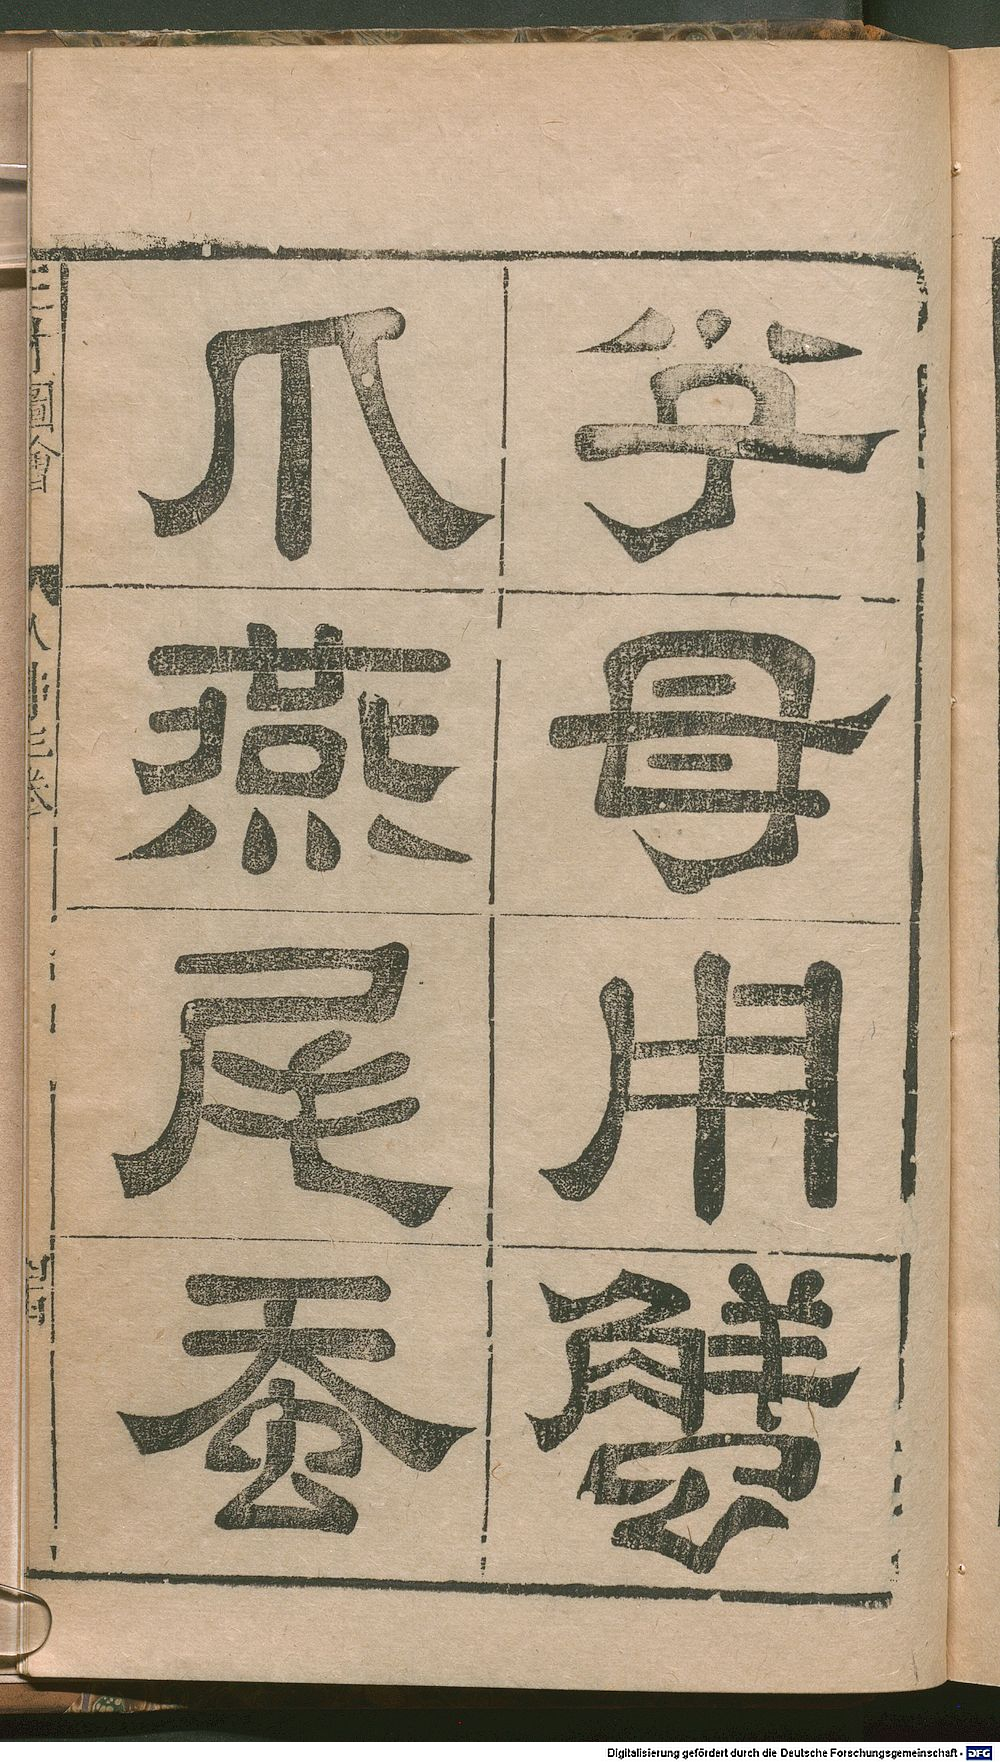 字母用蟹
爪燕尾蚕
圖會
Digitalisierung gefördert durch die Deutsche Forschungsgemeinschaft - DFG